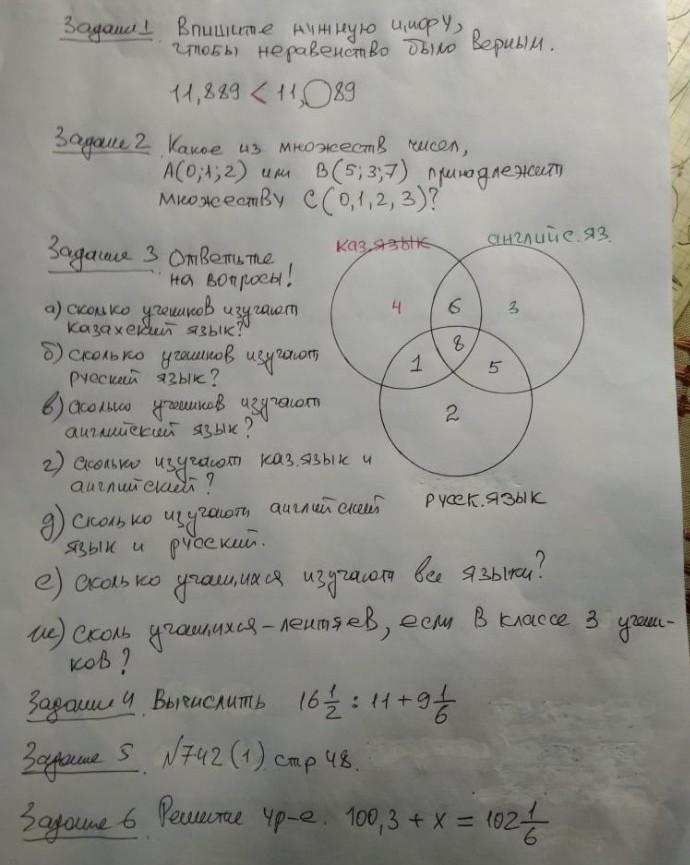 Задание 1 Впишите нужную цифру,
чтобы неравенство было верным.
11,889 < 11,◯89
Задание 2 Какое из множеств чисел,
А(0;1;2) или В(5;3;7) принадлежит
множеству С(0,1,2,3)?
Задание 3 Ответьте
на вопросы!
каз.язык
английс.яз.
4 6 3
8
1 5
2
русск.язык
а) сколько учеников изучают
казахский язык?
б) сколько учеников изучают
русский язык?
в) сколько учеников изучают
английский язык?
г) сколько изучают каз.язык и
английский?
д) сколько изучают английский
язык и русский.
е) сколько учащихся изучают все языки?
ж) сколь учащихся-лентяев, если в классе 3 учени-
ков?
Задание 4 Вычислить 16 1/2 : 11 + 9 1/6
Задание 5. №742(1) стр 48.
Задание 6 Решите ур-е. 100,3 + x = 102 1/6